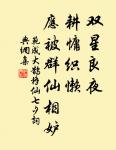 双星良夜
耕慵织懒
应被群仙相妒
范成大鹊桥仙七夕词
典调集